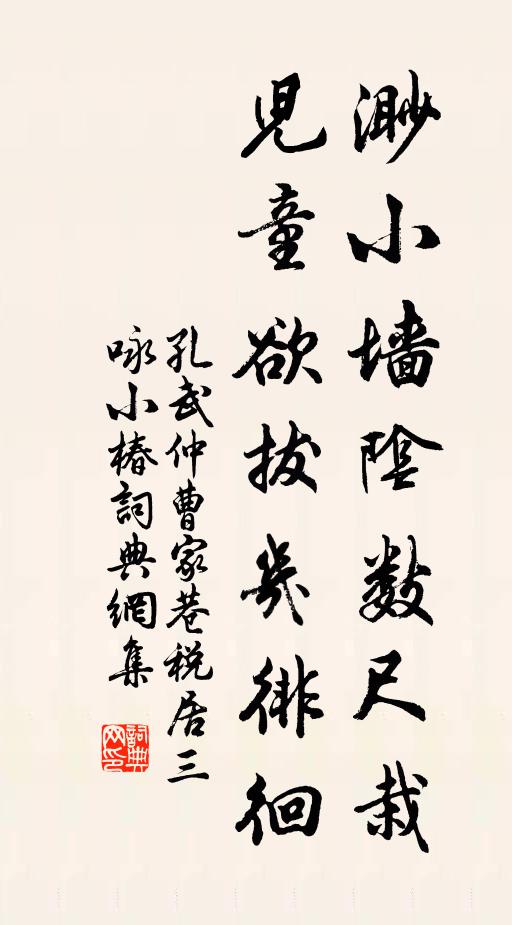 渺小墙陰数尺栽
兒童欲拔幾徘徊
孔武仲曹家巷税居三
咏小椿詞典網集
詞典网印